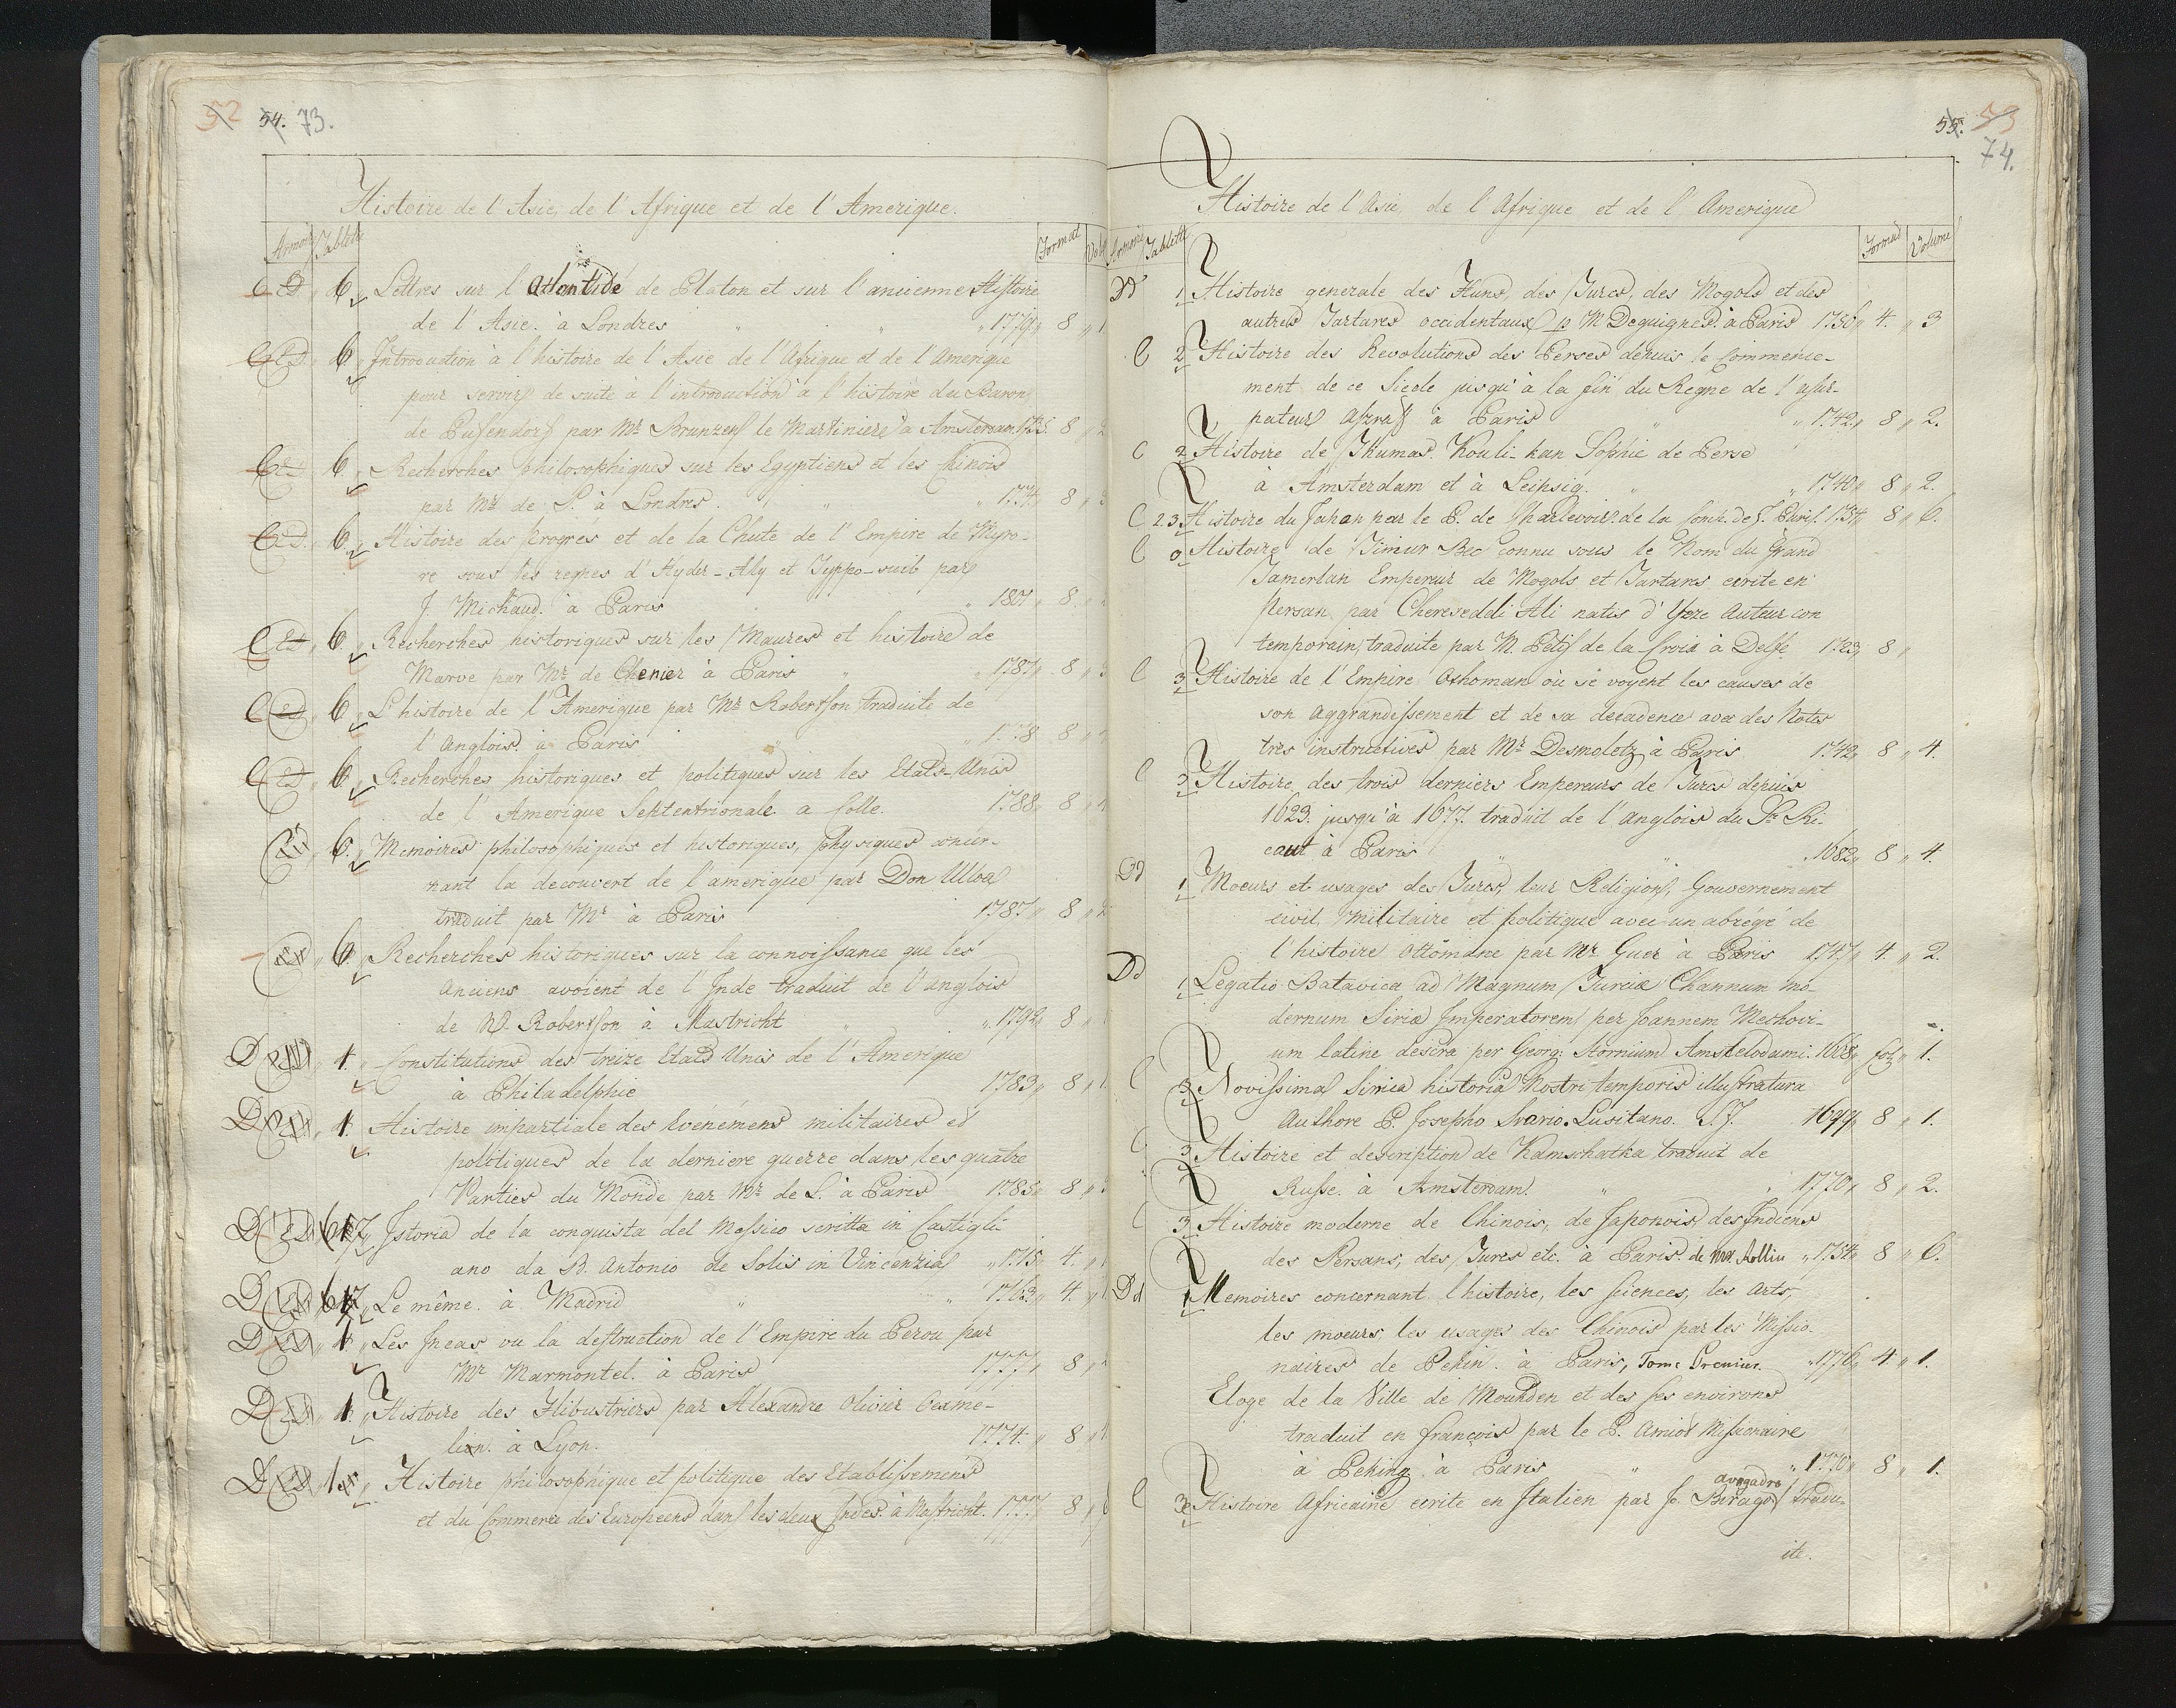 52 54. 73.
Histoire de l'Asie, de l'Afrique et de l'Amerique.
Armoire Tablette Format Vol
C 6 Lettres sur l'Atlantide de Platon et sur l'ancienne Histoire
de l'Asie. à Londres " " " 1779 " 8 " 1
C 6 Introduction à l'histoire de l'Asie de l'Afrique et de l'Amerique
pour servir de suite à l'introduction à l'histoire du Baron
de Pufendorf par Mr. Brunzen le Martiniere à Amsterdam 1735. 8 " 2
C 6 Recherches philosophiques sur les Egyptiens et les Chinois
par Mr. de P. à Londres. " " 1774 " 8 "
C 6 Histoire des Progrés et de la Chute de l'Empire de Myso-
re sous les regnes d'Hyder-Aly et Typpo-suib par
J. Michaud. à Paris 1801 " 8 "
C 6 Recherches historiques sur les Maures et histoire de
Maroc par Mr. de Chenier à Paris " 1787 " 8 " 3
C 6 L'histoire de l'Amerique par Mr. Robertson traduite de
l'Anglois. à Paris 1778 8 "
C 6 Recherches historiques et politiques sur les Etats-Unis
de l'Amerique Septentrionale a Colle. 1788 " 8 "
6. Memoires philosophiques et historiques, physiques concer-
nant la decouvert de l'amerique par Don Ulloa
traduit par Mr à Paris 1787 " 8 " 2
6 Recherches historiques sur la connoissance que les
Anciens avoient de l'Inde traduit de l'anglois
de W. Robertson à Mastricht " 1792 " 8 "
D 1. Constitutions des treize Etats Unis de l'Amerique
à Philadelphie 1783 " 8 " 1
D 1. Histoire impartiale des Evenémens militaires et
politiques de la derniere guerre dans les quatre
Parties du Monde par Mr. de L. à Paris 1785 " 8 " 3
D 7 Istoria de la conquista del Messico scritta in Castigli
ano da D. Antonio de Solis in Vincenzia " 1715 " 4. "
D 7 Le même. à Madrid " " 1763 " 4. "
D 1. Les Incas ou la destruction de l'Empire du Perou par
Mr Marmontel. à Paris 1777 " 8 "
D 1. Histoire des Flibustriers par Alexandre Olivier Oexme-
lin. à Lyon. 1774. " 8 "
D 1 Histoire philosophique et politique des Etablissemens
et du Commerce des Europeens dans les deux Indes. à Mastricht. 1777 8 "
55. 53
74.
Histoire de l'Asie, de l'Afrique et de l'Amerique
Armoire Tablette Format Volume
Dd 1 Histoire generale des Huns, des Turcs, des Mogols et des
autres Tartares occidentaux p M Deguignes. à Paris 1756 " 4. " 3
C 2 Histoire des Revolutions des Perses depuis le Commence-
ment de ce Siecle jusqu'à la fin du Regne de l'usur-
pateur Aszraff à Paris " " 1742 " 8 " 2.
C 2 Histoire de Thamas Kouli-kan Sophie de Perse
à Amsterdam et à Leipsig. " " 1740 " 8 " 2.
C 2.3 Histoire du Japan par le P. de Charlevoix de la Comp. de J. Paris. 1754 8 " 6.
C Histoire de Timur Bec connu sous le Nom du Grand
Tamerlan Empereur de Mogols et Tartares ecrite en
Persan par Chereseddi Ali natis d'Yeze Auteur con
temporain traduite par M. Petis de la Croix à Delfe 1723 " 8 "
C 3 Histoire de l'Empire Othoman où se voyent les causes de
son aggrandissement et de sa decadence avec des Notes
très instructives par Mr. Desmolotz à Paris 1742 " 8 " 4.
C 3 Histoire des trois derniers Empereurs de Turcs depuis
1623. jusqu'à 1677. traduit de l'anglois du Sr. Ri-
caut à Paris " " 1682 " 8 " 4.
Dd 1 Moeurs et usages des Turcs, leur Religion, Gouvernement
civil, Militaire et politique avec un abrégé de
l'histoire Ottomane par Mr Guer à Paris 1747 " 4. " 2.
Dd 1 Legatio Batavica ad Magnum Turciæ Channum mo-
dernum Siriæ Imperatorem per Joannem Meehovi-
um latine descra per Georg: Hornium Amstelodami. 1668 " fol " 1.
C 3 Novissima Sirica historia Nostri temporis illustratura
Authore P. Josepho Svario. Lusitano. S.J. 1699 " 8 " 1.
C 3 Histoire et description de Kamschatka traduit de
Russe. à Amsterdam. " " 1770 " 8 " 2.
C 3 Histoire moderne de Chinois, de Japonois, des Indiens
des Persans, des Turcs etc. à Paris. de Mr. Rollin " 1754 " 8 " 6.
Dd 1 Memoires concernant l'histoire, les sciences, les arts,
les moeurs, les usages des Chinois par les Missio-
naires de Pekin. à Paris, Tome Premier. " 1776 " 4 " 1.
Eloge de la Ville de Moukden et des ses environs
traduit en françois par le P. Amiot Missionaire
à Peking. à Paris " " 1770 " 8 " 1.
avogadro
C 3 Histoire Africaine ecrite en Italien par J. Birago traduite
ite.